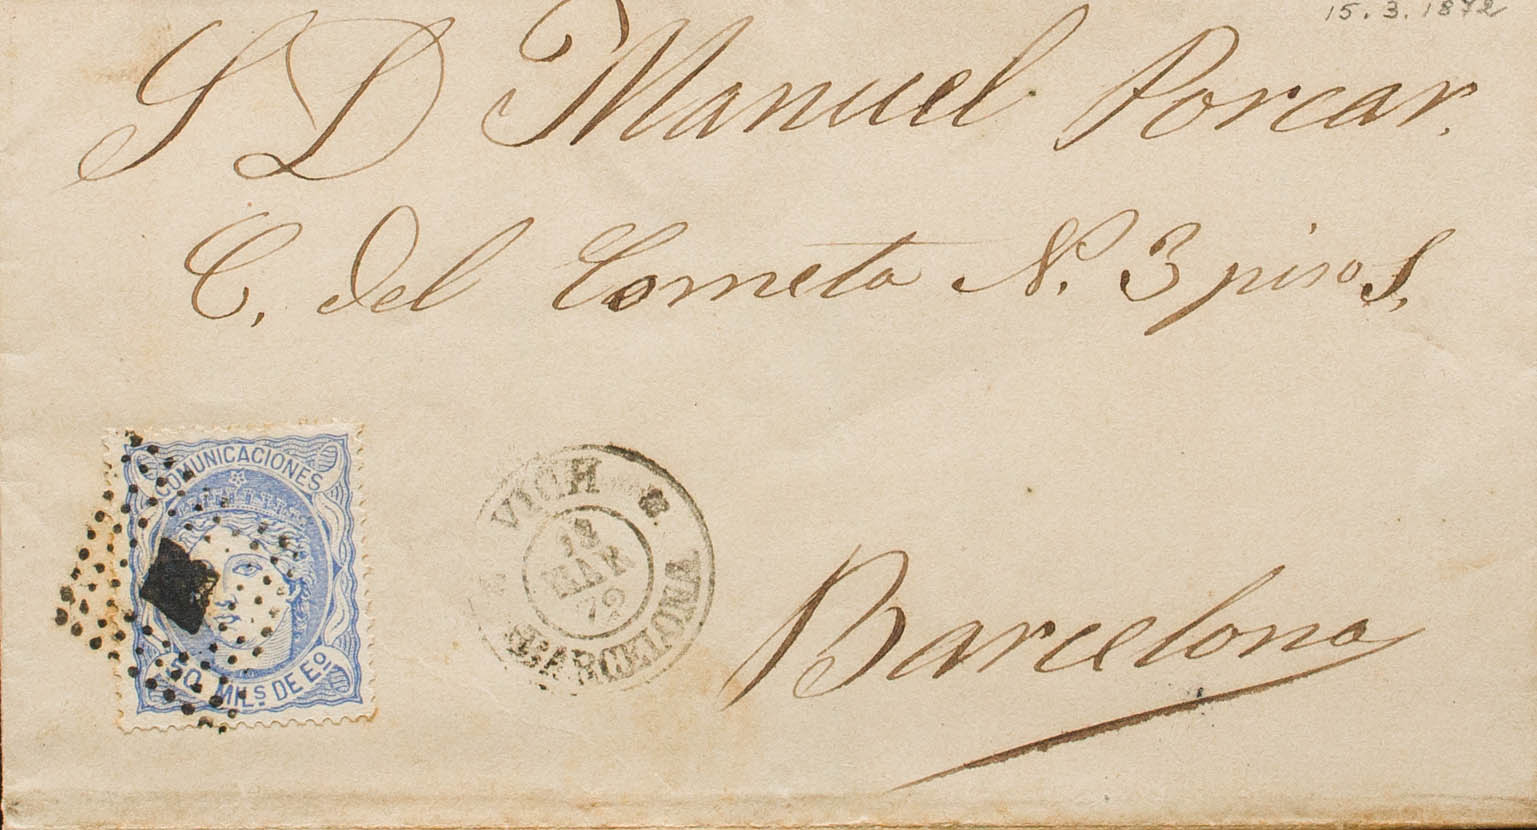 15.3.1872
S D Manuel Porcar.
C. del Cometa N. 3 piso S.
COMUNICACIONES
50 MILS DE Eo
VICH
MAR
72
BARCELONA
Barcelona